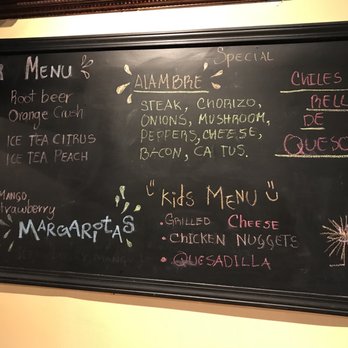 R MENU
Root beer
Orange Cush
ICE TEA CITRUS
ICE TEA PEACH
MANGO
Strawberry
MARGARITAS
Special
ALAMBRE
STEAK, CHORIZO,
ONIONS, MUSHROOM,
PEPPERS, CHEESE,
BACON, CATUS.
Kids MENU
• GRILLED CHEESE
• CHICKEN NUGGETS
• QUESADILLA
CHILES
RELL
DE
QUESO